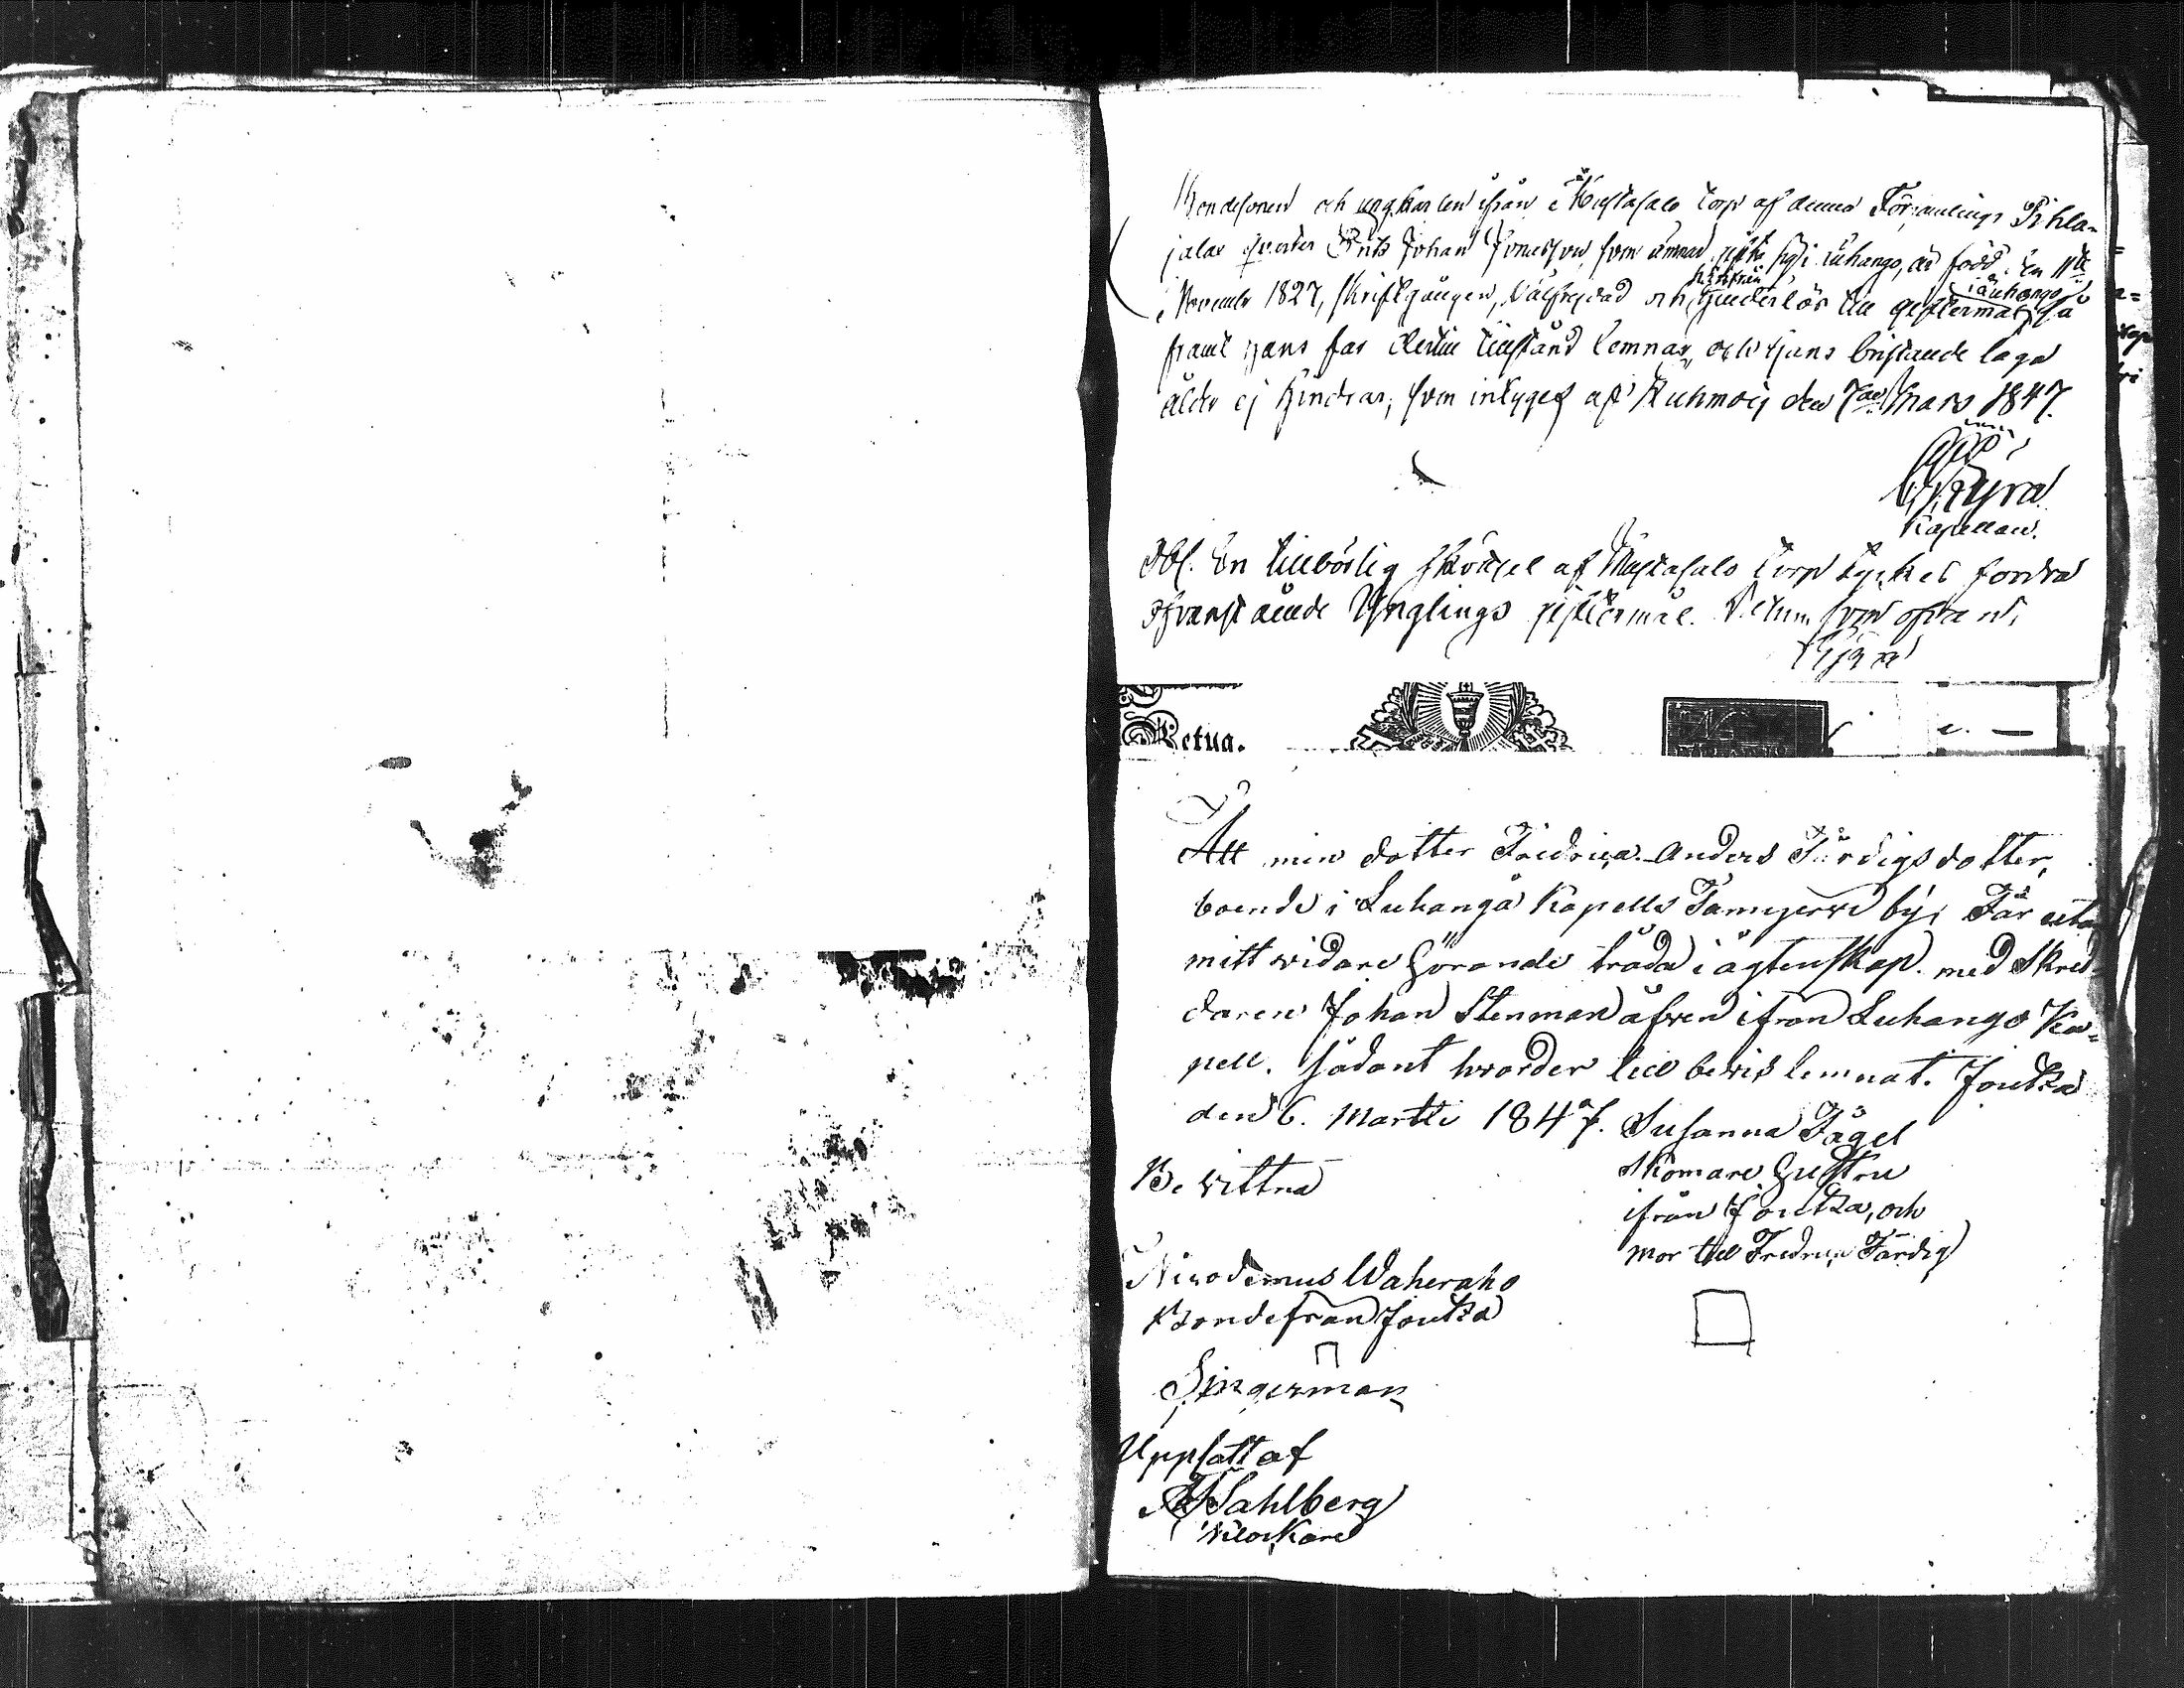 Bondesonen och ungkarlen ifrån Mustasalo torp af denna Församlings Pihla-
jalax qvarter Erik Johan Jonasson, som ämnar gifta sig i Luhango, är född den 11te
November 1827, skriftgången, välfrejdad och härifrån hinderlös till giftermål i Luhango så
framt hans far dertill tillstånd lemnar, och hans bristande laga
ålder ej hindrar; som intygas af Kuhmois den 7de Mars 1847.
Kapellan.
Obs. En tillbörlig skötsel af Mustasalo torp tyckes fordra
ofvanstående Ynglings giftermål. Datum som ofvan.
Retua.
Att min dotter Fredrica Anders Färdigsdotter,
boende i Luhanga Kapells Tamijerwi by, Får utan
mitt widare hörande träda i ägtenskap med Skred-
daren Johan Stenman äfven ifrån Luhango Ka-
pell. sådant hwarder till bewis lemnat. Joutsa
den 6. Martti 1847. Susanna Fågel
Skomare Hustru
ifrån Joutsa, och
mor till Fredrica Färdig
Be vittna
Nicodemus Waheraho
Bonde från Joutsa
Singerman
Uppsatt af
Sahlberg
Klockare